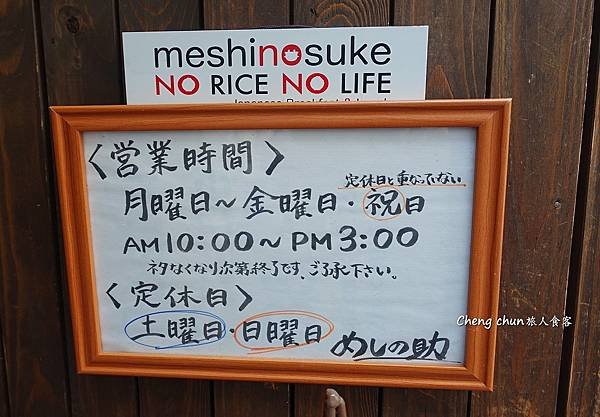 meshinosuke
NO RICE NO LIFE
Japanese Breakfast & Lunch
〈営業時間〉
定休日と重なっていない
月曜日～金曜日・祝日
AM10:00～PM3:00
ネタなくなり次第終了です、ご了承下さい。
〈定休日〉
土曜日・日曜日
めしの助
Cheng chun旅人食客